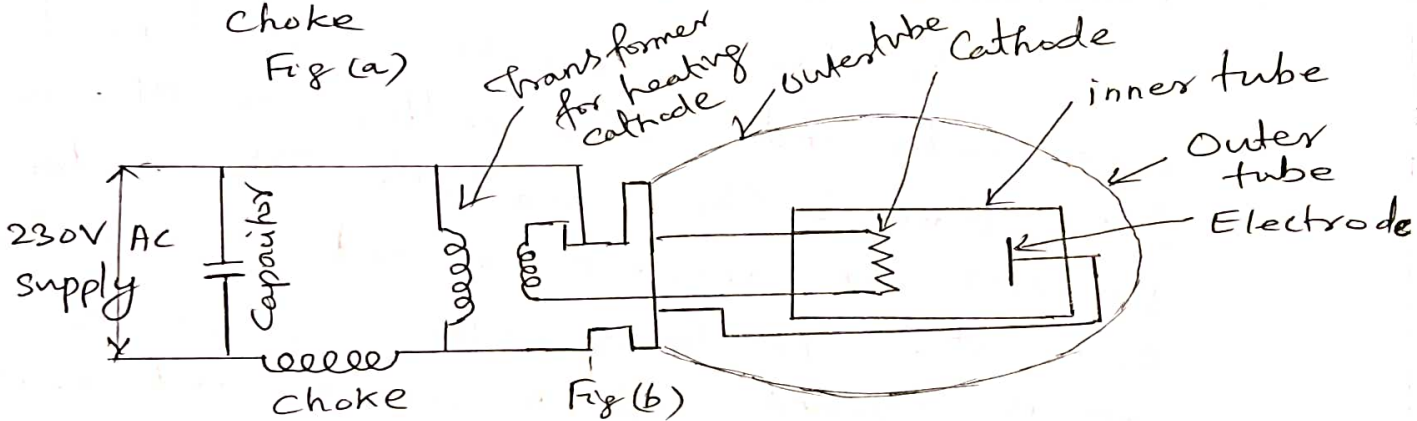 Choke
Fig (a)
Transformer
for heating
cathode
outertube
Cathode
inner tube
Outer
tube
Electrode
230V AC
Supply
Capacitor
Choke
Fig (b)